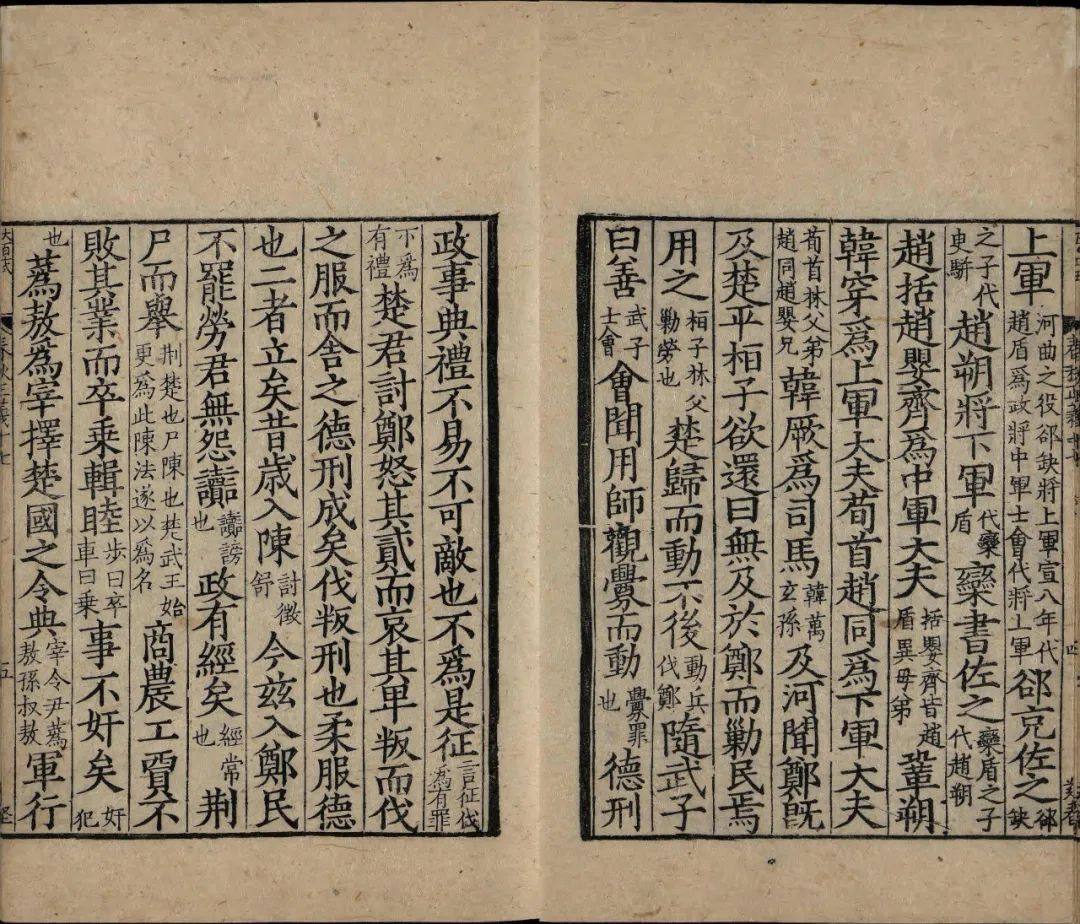 上軍河曲之役郤缺將上軍宣八年代趙盾爲政將中軍士會代將上軍郤克佐之郤缺
之子代臾駢趙朔將下軍代欒盾欒書佐之欒盾之子代趙朔
趙括趙嬰齊爲中軍大夫括嬰齊皆趙盾異母弟鞏朔
韓穿爲上軍大夫荀首趙同爲下軍大夫
荀首林父弟趙同趙嬰兄韓厥爲司馬韓萬玄孫及河聞鄭既
及楚平桓子欲還曰無及於鄭而勦民焉
用之桓子林父勦勞也楚歸而動不後動兵伐鄭隨武子
曰善武子士會會聞用師觀釁而動釁罪也德刑
政事典禮不易不可敵也不爲是征言征伐爲有罪
不爲有禮楚君討鄭怒其貳而哀其卑叛而伐
之服而舍之德刑成矣伐叛刑也柔服德
也二者立矣昔歲入陳討徵舒今茲入鄭民
不罷勞君無怨讟讟謗也政有經矣經常也荆
尸而舉荆楚也尸陳也楚武王始更爲此陳法遂以爲名商農工賈不
敗其業而卒乘輯睦步曰卒車曰乘事不奸矣奸犯
也蒍敖爲宰擇楚國之令典宰令尹蒍敖孫叔敖軍行